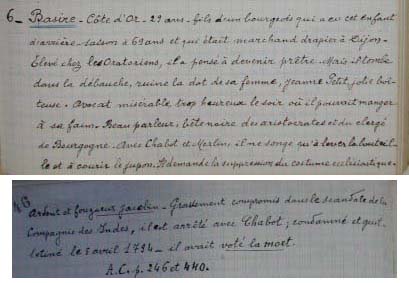 6_ Basire _ Côte d'Or _ 29 ans _ fils d'un bourgeois qui a eu cet enfant
d'arrière-saison à 69 ans et qui était marchand drapier à Dijon _
Elevé chez les Oratoriens, il a pensé à devenir prêtre _ Mais il tombe
dans la débauche, ruine la dot de sa femme, Jeanne Petit, jolie boi-
teuse _ Avocat misérable trop heureux le soir où il pouvait manger
à sa faim _ Beau parleur, bête noire des aristocrates et du clergé
de Bourgogne _ Avec Chabot et Merlin, il ne songe qu'à lever la bouteil-
le et à courir le jupon _ Il demande la suppression du costume ecclésiastique _
46
Ardent et fougueux jacobin _ Grassement compromis dans le scandale de la
Compagnie des Indes, il est arrêté avec Chabot ; condamné et guil-
lotiné le 5 avril 1794 _ il avait voté la mort.
A.C. p. 246 et 440.